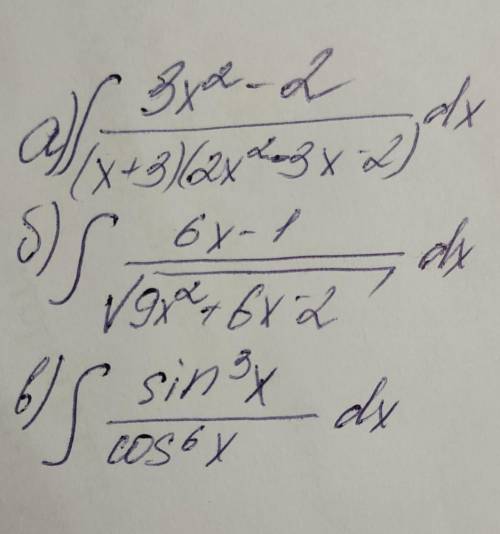 а) ∫ (3x² - 2) / ((x+3)(2x² - 3x - 2)) dx
б) ∫ (6x - 1) / √(9x² + 6x - 2) dx
в) ∫ sin³x / cos⁶x dx